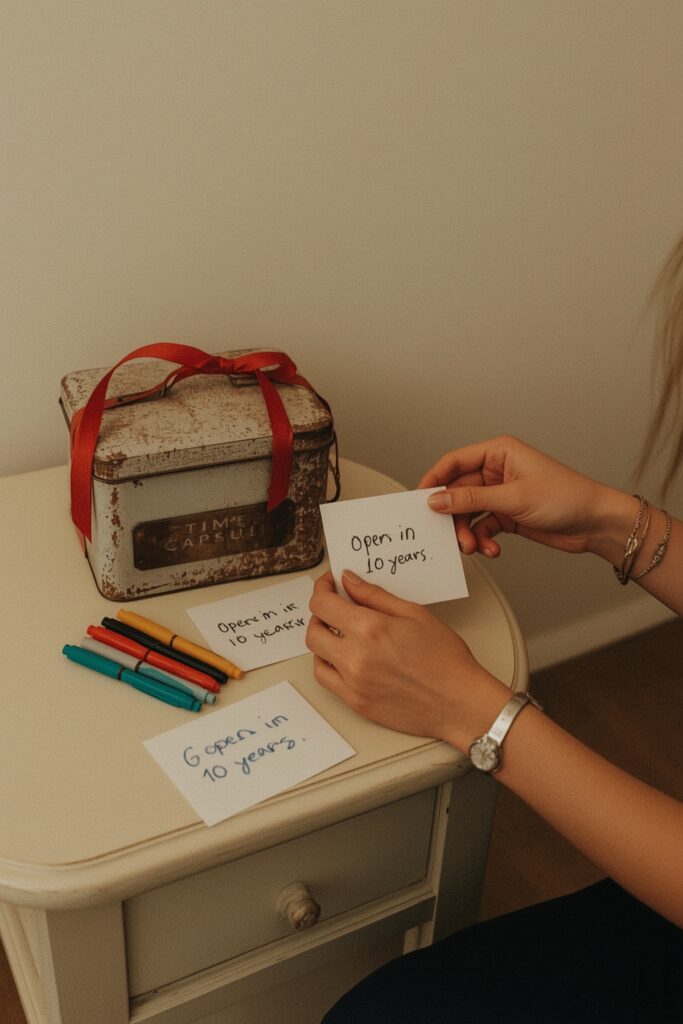 TIME
CAPSUL
Open in
10 years.
Open in in
10 years
G open in
10 years.